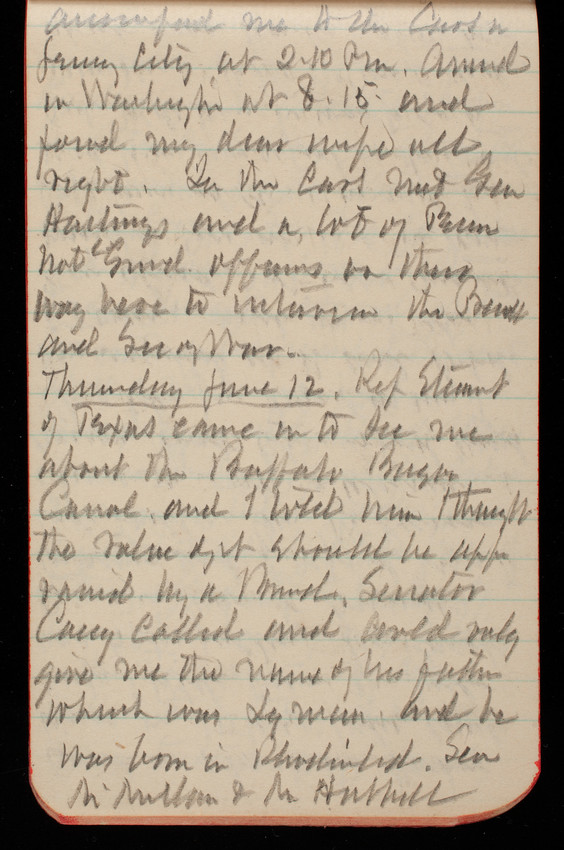 me to the Cars in
Jersey City at 2.10 Pm. Arrived
in Washington at 8.15 and
found my dear wife all
right. In the Cars met Gen
Hastings and a lot of Penn
Natl Guard officers on their
way here to interview the Presdt
and Sec of War.
Thursday June 12. Rep Stewart
of Texas came in to see me
about the Buffalo Bayou
Canal and I told him I thought
the value of it should be app
raised by a Board. Senator
Casey called and could only
give me the name of his father
which was Lyman and he
was born in Rhodeisland. Sen
McMillan & Mr